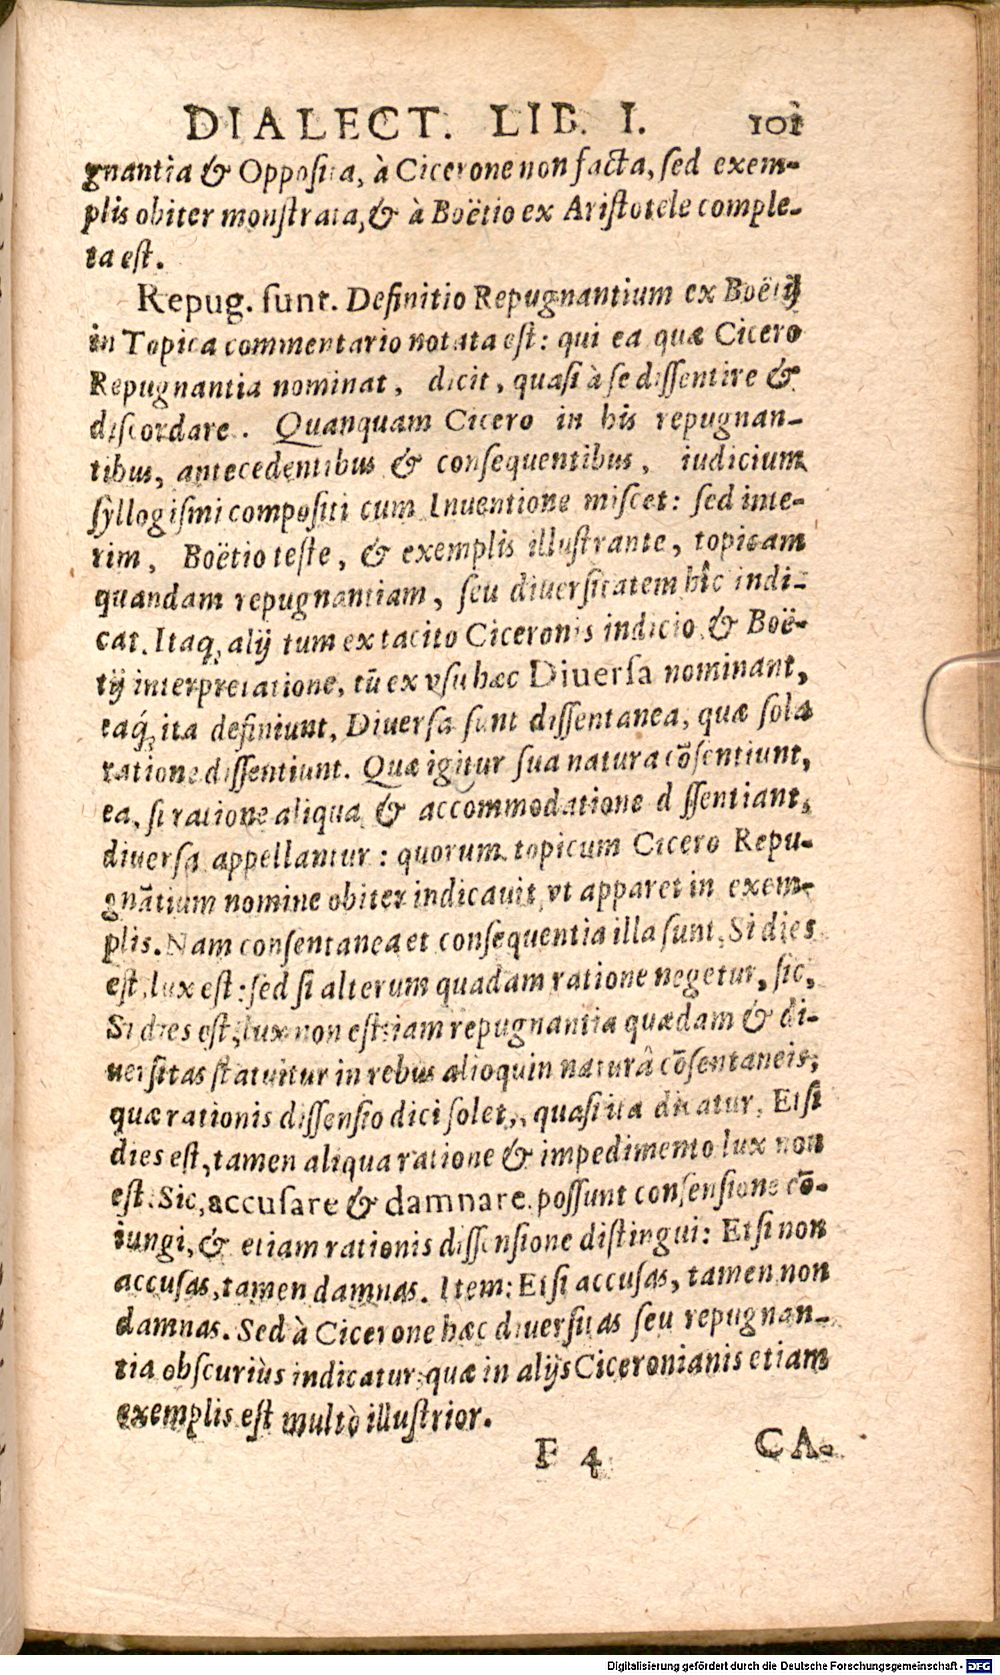 DIALECT. LIB. I. 101
gnantia & Opposita, à Cicerone non facta, sed exem-
plis obiter monstrata, & à Boëtio ex Aristotele comple-
ta est.
Repug. sunt. Definitio Repugnantium ex Boëtij
in Topica commentario notata est: qui ea quæ Cicero
Repugnantia nominat, dicit, quasi à se dissentire &
discordare. Quanquam Cicero in his repugnan-
tibus, antecedentibus & consequentibus, iudicium
syllogismi compositi cum Inuentione miscet: sed inte-
rim, Boëtio teste, & exemplis illustrante, topicam
quandam repugnantiam, seu diuersitatem hîc indi-
cat. Itaq, alij tum ex tacito Ciceronis indicio & Boë-
tij interpretatione, tū ex vsu hæc Diuersa nominant,
eaq́, ita definiunt, Diuersa sunt dissentanea, quæ sola
ratione dissentiunt. Quæ igitur sua natura cōsentiunt,
ea, si ratione aliqua & accommodatione dissentiant,
diuersa appellantur: quorum topicum Cicero Repu-
gnātium nomine obiter indicavit, vt apparet in exem-
plis. Nam consentanea et consequentia illa sunt, Si dies
est, lux est: sed si alterum quadam ratione negetur, sic,
Si dies est, lux non est: iam repugnantia quædam & di-
uersitas statuitur in rebus alioquin naturâ cōsentaneis;
quæ rationis dissensio dici solet, quasi ita dicatur, Etsi
dies est, tamen aliqua ratione & impedimento lux non
est. Sic, accusare & damnare possunt consensione cō-
iungi, & etiam rationis dissensione distingui: Etsi non
accusas, tamen damnas. Item: Etsi accusas, tamen non
damnas. Sed à Cicerone hæc diuersitas seu repugnan-
tia obscuriùs indicatur: quæ in alijs Ciceronianis etiam
exemplis est multò illustrior.
F 4 CA-
Digitalisierung gefördert durch die Deutsche Forschungsgemeinschaft - DFG